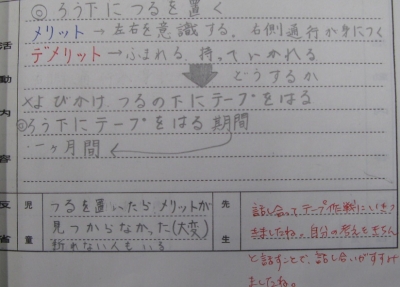 ◎ろう下につるを置く
メリット→左右を意識する。右側通行が身につく
デメリット→ふまれる。持っていかれる
どうするか
×よびかけ つるの下にテープをはる
◎ろう下にテープをはる 期間
一ヶ月間
活動内容
反省
児童
つるを置いたらメリットが
見つからなかった(大変)
折れない人もいる
先生
話し合って、テープ作戦にいきつ
きましたね。自分の考えをきちん
と話すことで、話し合いがすすみ
ましたね。